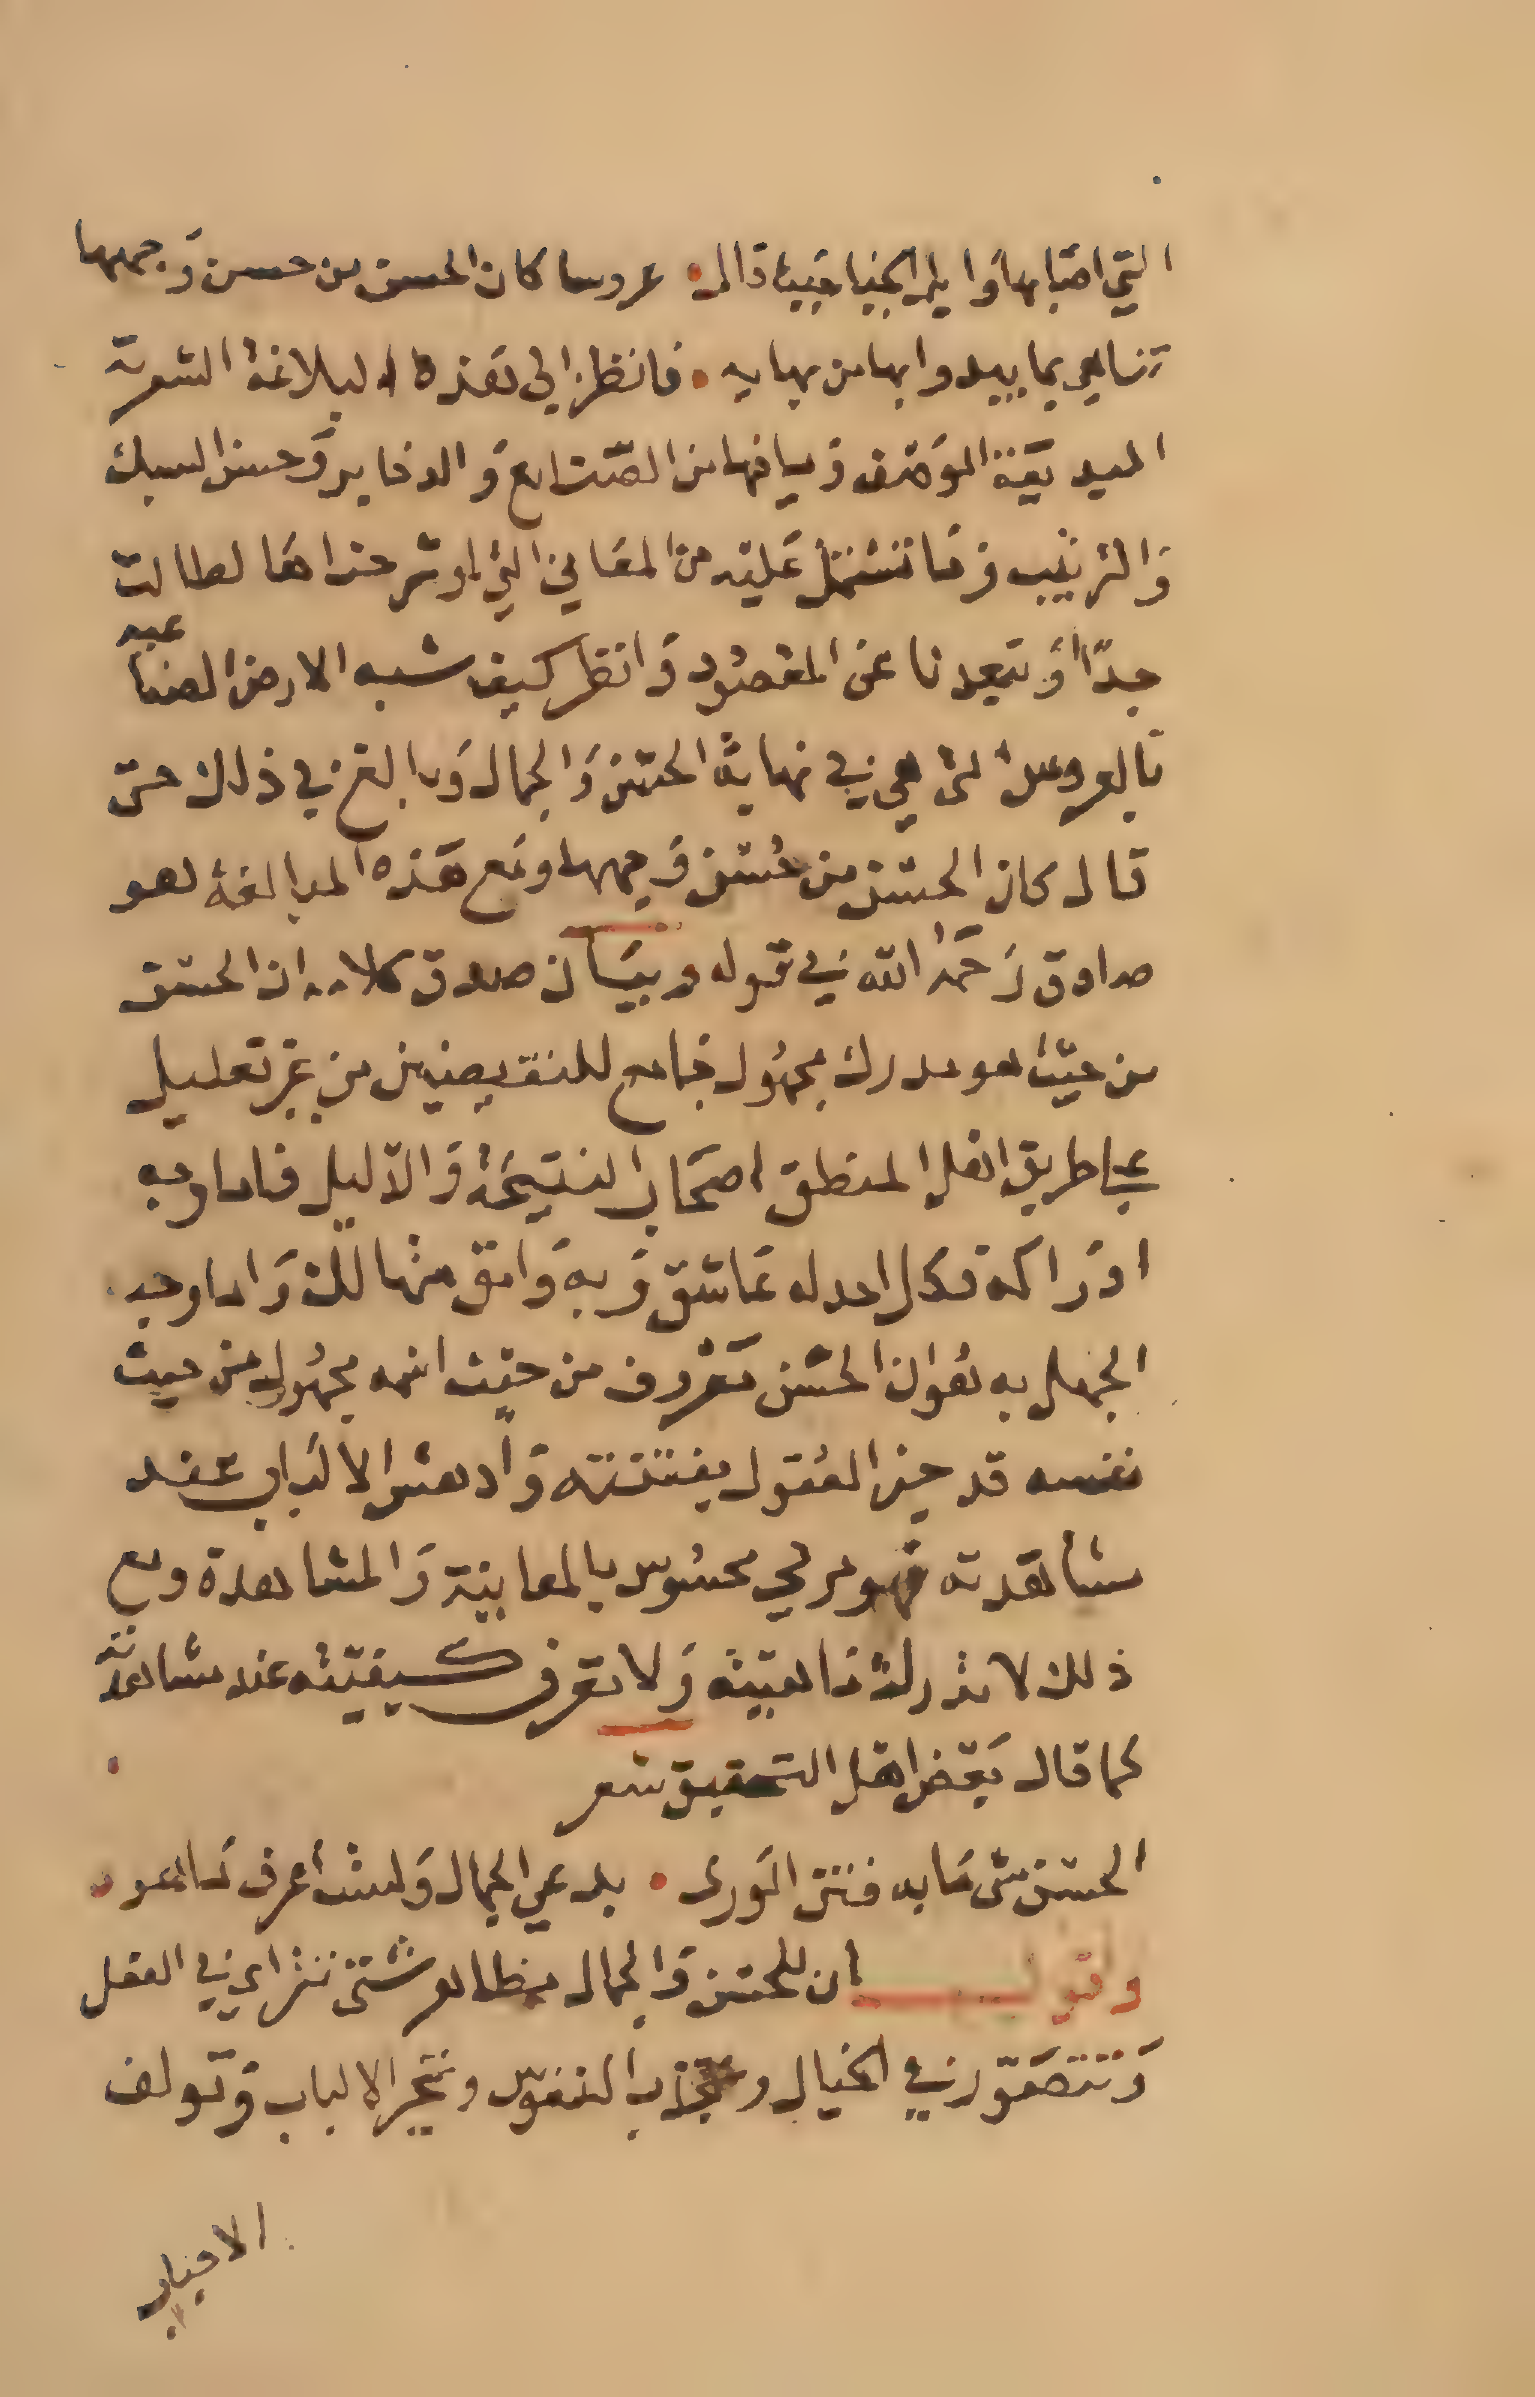 عروسا كان الحسن من حسن وجهها
تناهى بما يبدوا بها من بهايه • فانظر الى هذه البلاغة الشعرية
البديعة الوصف وما فيها من الصنايع والذخاير وحسن السبك
والترتيب وما تشتمل عليه من المعاني التي لو شرحناها لطالت
جدا وتبعدنا عن المقصود وانظر كيف شبه الارض الصناعيه
بالعروس التي هي في نهاية الحسن والجمال وبالغ في ذلك حتى
قال كان الحسن من حسن وجهها ومع هذه المبالغة فهو
صادق رحمه الله في قوله وبيان صدق كلامه ان الحسن
من حيث هو مدرك مجهول جامع للنقيضين من غير تعليل
على طريق اهل المنطق اصحاب النتيجة والدليل فاما وجه
ادراكه فكل احد له عاشق وبه وامق واما وجه
الجهل به نقول ان الحسن معروف من حيث اسمه مجهول من حيث
نفسه قد حير العقول بفتنته وادهش الالباب عند
مشاهدته فهو مرئي محسوس بالمعاينة والمشاهدة ومع
ذلك لا تدرك ماهيته ولا تعرف كيفيته عند مشاهدته
كما قال بعض اهل التحقيق شعر
الحسن شى ما به فتن الورى • يدعى الجمال ولست اعرف ما هو •
وقولـــــــ ان للحسن والجمال مظاهر شتى تتراى في العقل
وتتصور في الخيال وتجذب النفوس وتحير الالباب وتولف
الاحباب